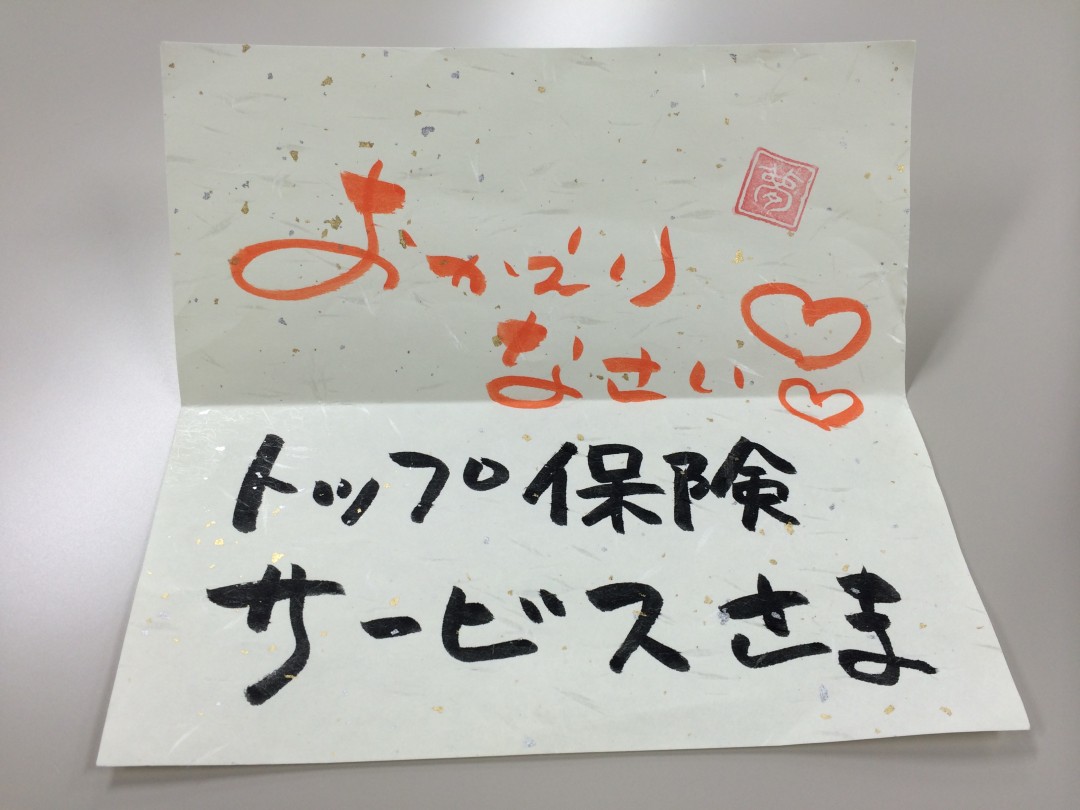 夢
おかえり
なさい
トップ保険
サービスさま